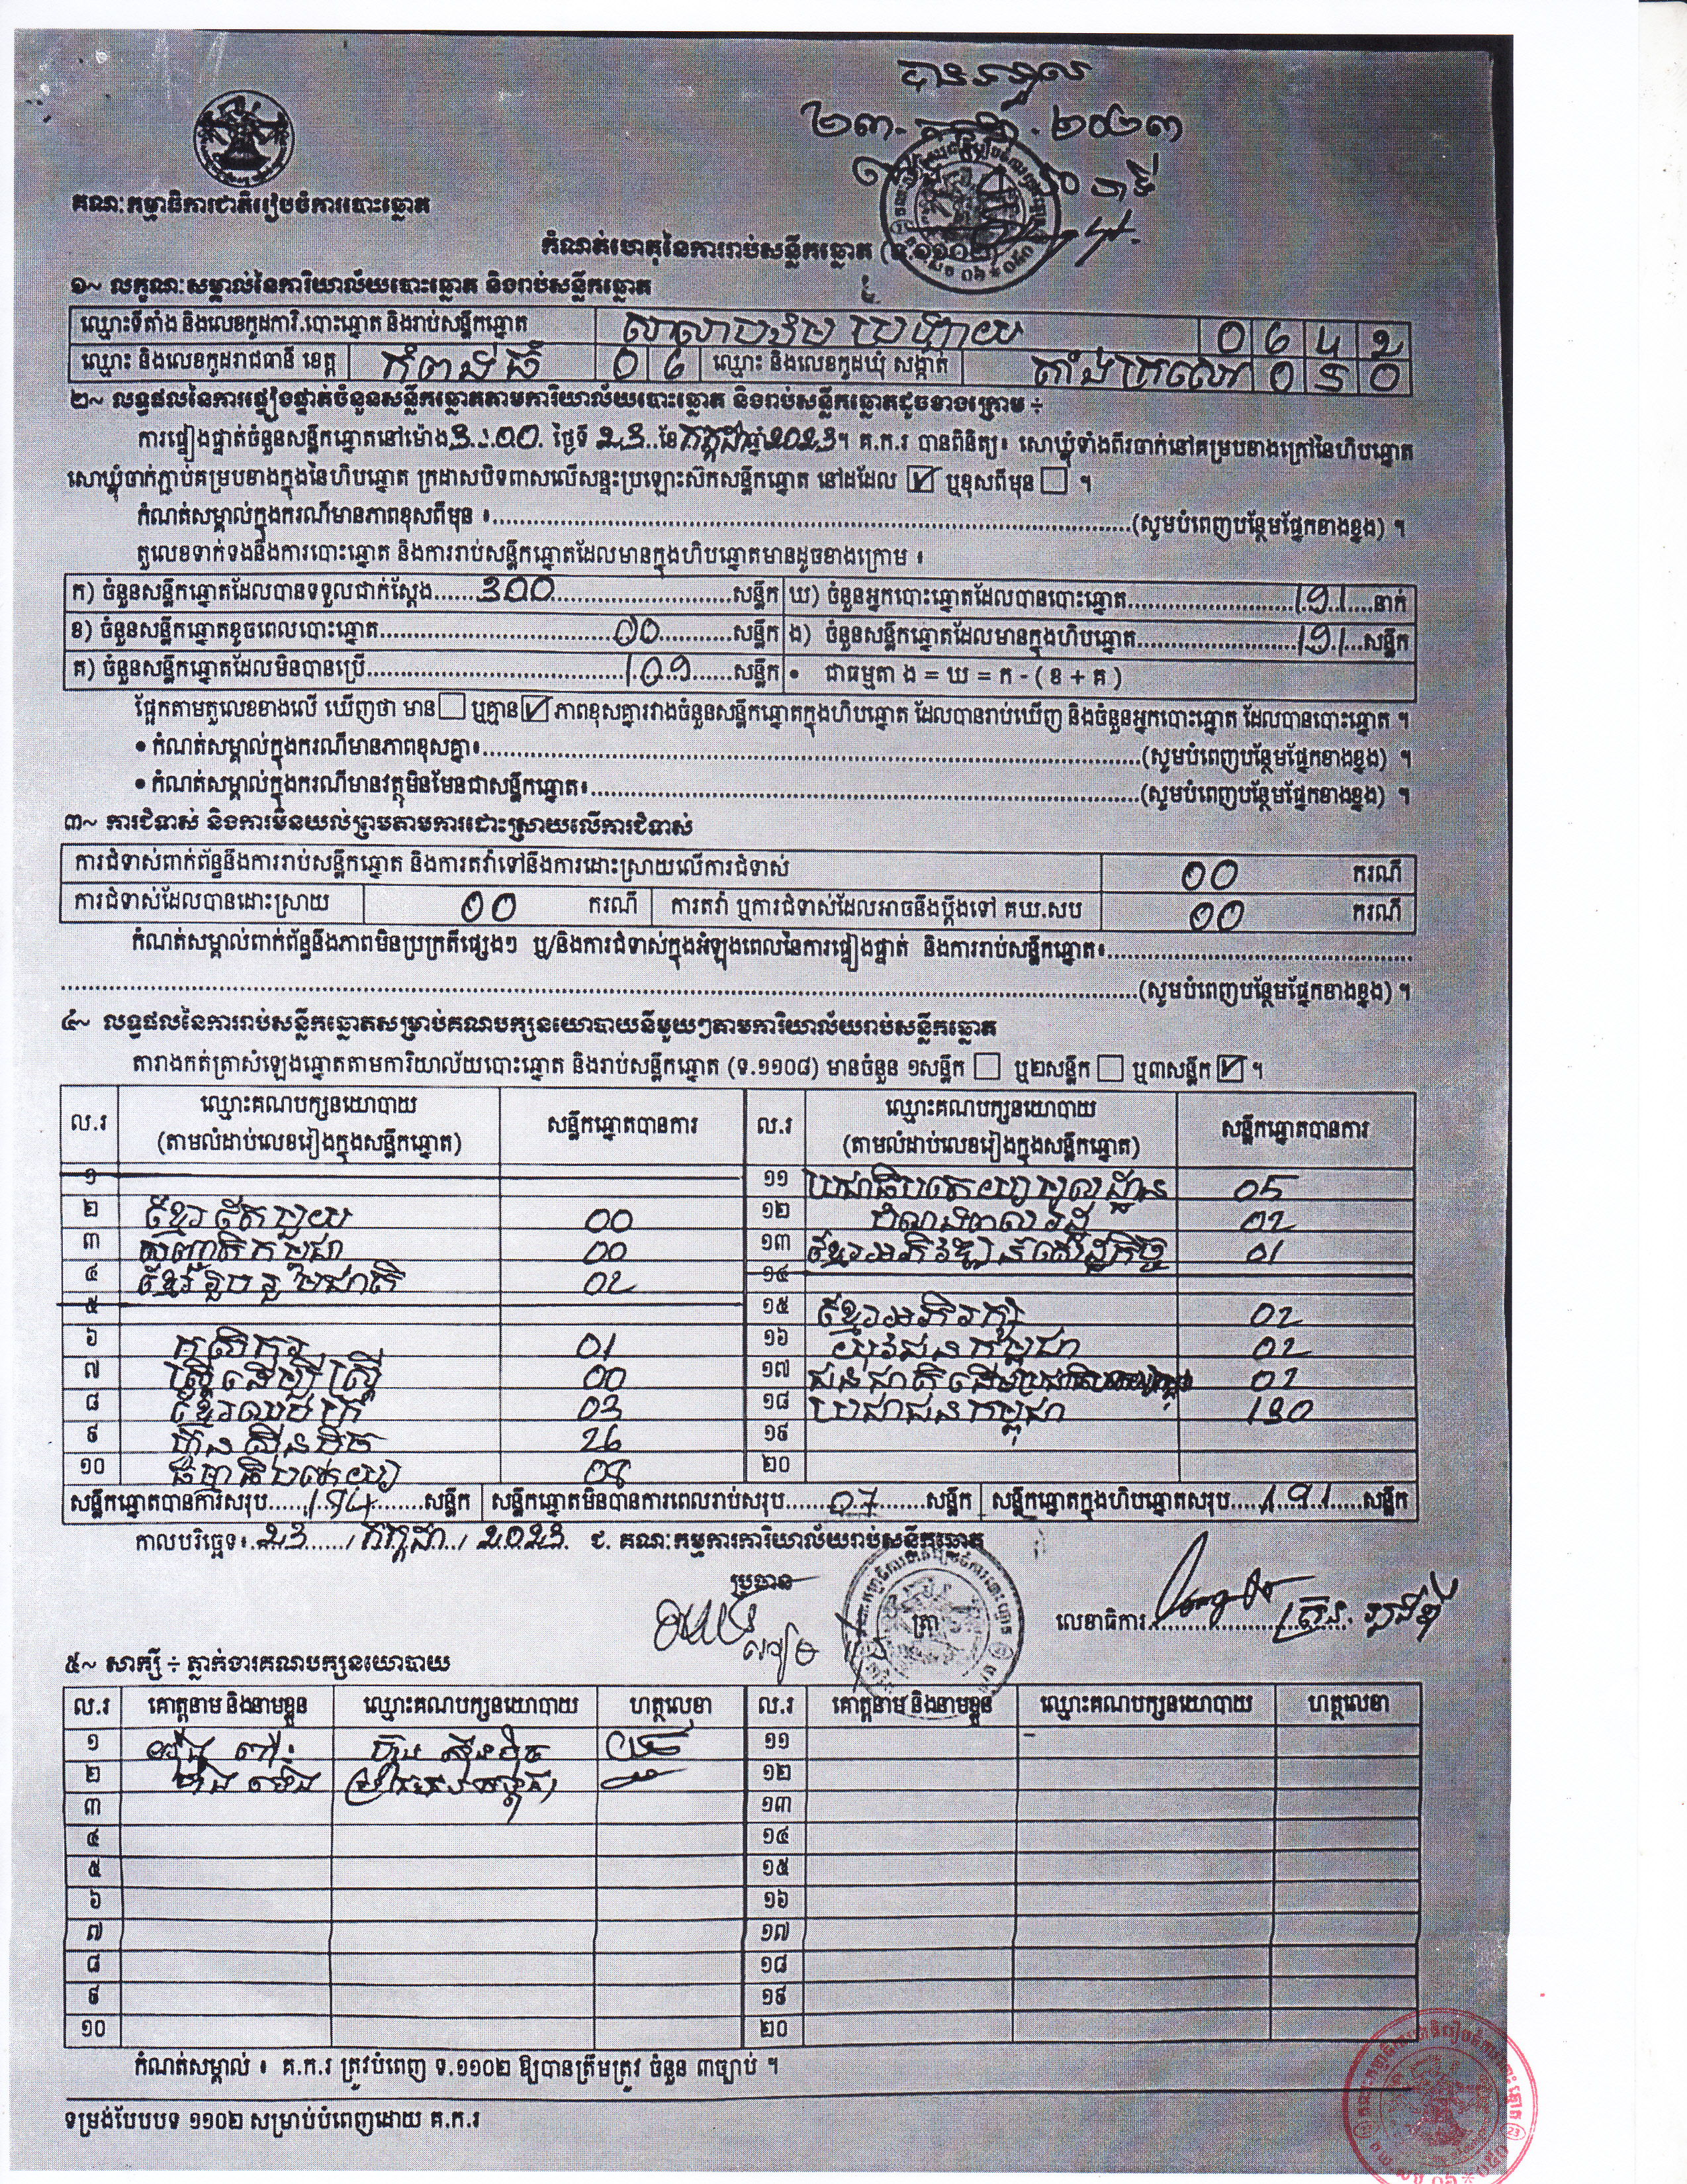 បានទទួល
២៣. កក្កដា . ២០២៣
គណៈកម្មាធិការជាតិរៀបចំការបោះឆ្នោត
កំណត់ហេតុនៃការរាប់សន្លឹកឆ្នោត (ទ.១១០២)
១~ លក្ខណៈសម្គាល់នៃការិយាល័យបោះឆ្នោត និងរាប់សន្លឹកឆ្នោត
ឈ្មោះទីតាំង និងលេខកូដការិ.បោះឆ្នោត និងរាប់សន្លឹកឆ្នោត 0642
ឈ្មោះ និងលេខកូដរាជធានី ខេត្ត កំពង់ធំ 06 ឈ្មោះ និងលេខកូដឃុំ សង្កាត់ តាំងក្រសៅ 050
២~ លទ្ធផលនៃការផ្ទៀងផ្ទាត់ចំនួនសន្លឹកឆ្នោតតាមការិយាល័យបោះឆ្នោត និងរាប់សន្លឹកឆ្នោតដូចខាងក្រោម ÷
ការផ្ទៀងផ្ទាត់ចំនួនសន្លឹកឆ្នោតនៅម៉ោង 3:00 ថ្ងៃទី 23 ខែ កក្កដា ឆ្នាំ 2023។ គ.ក.រ បានពិនិត្យ៖ សោឃ្លុំទាំងពីរចាក់នៅគម្របខាងក្រៅនៃហិបឆ្នោត
សោឃ្លុំចាក់ភ្ជាប់គម្របខាងក្នុងនៃហិបឆ្នោត ក្រដាសបិទពាសលើសន្ទះប្រឡោះស៊កសន្លឹកឆ្នោត នៅដដែល ☑ ឬខុសពីមុន ☐ ។
កំណត់សម្គាល់ក្នុងករណីមានភាពខុសពីមុន ៖ (សូមបំពេញបន្ថែមផ្នែកខាងខ្នង) ។
តួលេខទាក់ទងនឹងការបោះឆ្នោត និងការរាប់សន្លឹកឆ្នោតដែលមានក្នុងហិបឆ្នោតមានដូចខាងក្រោម ៖
ក) ចំនួនសន្លឹកឆ្នោតដែលបានទទួលជាក់ស្តែង 300 សន្លឹក ឃ) ចំនួនអ្នកបោះឆ្នោតដែលបានបោះឆ្នោត 191 នាក់
ខ) ចំនួនសន្លឹកឆ្នោតខូចពេលបោះឆ្នោត 00 សន្លឹក ង) ចំនួនសន្លឹកឆ្នោតដែលមានក្នុងហិបឆ្នោត 191 សន្លឹក
គ) ចំនួនសន្លឹកឆ្នោតដែលមិនបានប្រើ 109 សន្លឹក • ជាធម្មតា ង = ឃ = ក - ( ខ + គ )
ផ្អែកតាមតួលេខខាងលើ ឃើញថា មាន ☐ ឬគ្មាន ☑ ភាពខុសគ្នារវាងចំនួនសន្លឹកឆ្នោតក្នុងហិបឆ្នោត ដែលបានរាប់ឃើញ និងចំនួនអ្នកបោះឆ្នោត ដែលបានបោះឆ្នោត ។
• កំណត់សម្គាល់ក្នុងករណីមានភាពខុសគ្នា៖ (សូមបំពេញបន្ថែមផ្នែកខាងខ្នង) ។
• កំណត់សម្គាល់ក្នុងករណីមានវត្ថុមិនមែនជាសន្លឹកឆ្នោត៖ (សូមបំពេញបន្ថែមផ្នែកខាងខ្នង) ។
៣~ ការជំទាស់ និងការមិនយល់ព្រមតាមការដោះស្រាយលើការជំទាស់
ការជំទាស់ពាក់ព័ន្ធនឹងការរាប់សន្លឹកឆ្នោត និងការតវ៉ាទៅនឹងការដោះស្រាយលើការជំទាស់ 00 ករណី
ការជំទាស់ដែលបានដោះស្រាយ 00 ករណី ការតវ៉ា ឬការជំទាស់ដែលអាចនឹងប្តឹងទៅ គឃ.សប 00 ករណី
កំណត់សម្គាល់ពាក់ព័ន្ធនឹងភាពមិនប្រក្រតីផ្សេងៗ ឬ/និងការជំទាស់ក្នុងអំឡុងពេលនៃការផ្ទៀងផ្ទាត់ និងការរាប់សន្លឹកឆ្នោត៖
(សូមបំពេញបន្ថែមផ្នែកខាងខ្នង) ។
៤~ លទ្ធផលនៃការរាប់សន្លឹកឆ្នោតសម្រាប់គណបក្សនយោបាយនីមួយៗតាមការិយាល័យរាប់សន្លឹកឆ្នោត
តារាងកត់ត្រាសំឡេងឆ្នោតតាមការិយាល័យបោះឆ្នោត និងរាប់សន្លឹកឆ្នោត (ទ.១១០៨) មានចំនួន ១សន្លឹក ☐ ឬ២សន្លឹក ☐ ឬ៣សន្លឹក ☑ ។
ល.រ ឈ្មោះគណបក្សនយោបាយ (តាមលំដាប់លេខរៀងក្នុងសន្លឹកឆ្នោត) សន្លឹកឆ្នោតបានការ ល.រ ឈ្មោះគណបក្សនយោបាយ (តាមលំដាប់លេខរៀងក្នុងសន្លឹកឆ្នោត) សន្លឹកឆ្នោតបានការ
១ ១១ ប្រជាធិបតេយ្យមូលដ្ឋាន 05
២ ខ្មែរតែមួយ 00 ១២ បំណងពលរដ្ឋ 02
៣ 00 ១៣ ខ្មែរអភិវឌ្ឍន៍សេដ្ឋកិច្ច 01
៤ ខ្មែររួបរួមជាតិ 02 ១៤
៥ ១៥ ខ្មែរអភិរក្ស 02
៦ កសិករ 01 ១៦ យុវជនកម្ពុជា 02
៧ ស្ត្រីដើម្បីស្ត្រី 00 ១៧ 02
៨ ខ្មែរឈប់ក្រ 03 ១៨ ប្រជាជនកម្ពុជា 130
៩ ហ៊្វុនស៊ិនប៉ិច 26 ១៩
១០ ធម្មាធិបតេយ្យ 08 ២០
សន្លឹកឆ្នោតបានការសរុប 184 សន្លឹក សន្លឹកឆ្នោតមិនបានការពេលរាប់សរុប 07 សន្លឹក សន្លឹកឆ្នោតក្នុងហិបឆ្នោតសរុប 191 សន្លឹក
កាលបរិច្ឆេទ៖ 23 / កក្កដា / 2023 ជ. គណៈកម្មការការិយាល័យរាប់សន្លឹកឆ្នោត
ប្រធាន ត្រា លេខាធិការ
៥~ សាក្សី ÷ ភ្នាក់ងារគណបក្សនយោបាយ
ល.រ គោត្តនាម និងនាមខ្លួន ឈ្មោះគណបក្សនយោបាយ ហត្ថលេខា ល.រ គោត្តនាម និងនាមខ្លួន ឈ្មោះគណបក្សនយោបាយ ហត្ថលេខា
១ ហ៊្វុនស៊ិនប៉ិច ១១
២ ប្រជាជនកម្ពុជា ១២
៣ ១៣
៤ ១៤
៥ ១៥
៦ ១៦
៧ ១៧
៨ ១៨
៩ ១៩
១០ ២០
កំណត់សម្គាល់ ៖ គ.ក.រ ត្រូវបំពេញ ទ.១១០២ ឱ្យបានត្រឹមត្រូវ ចំនួន ៣ច្បាប់ ។
ទម្រង់បែបបទ ១១០២ សម្រាប់បំពេញដោយ គ.ក.រ